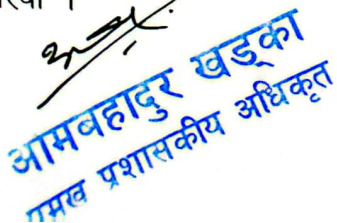 आमबहादुर खड्का
प्रमुख प्रशासकीय अधिकृत